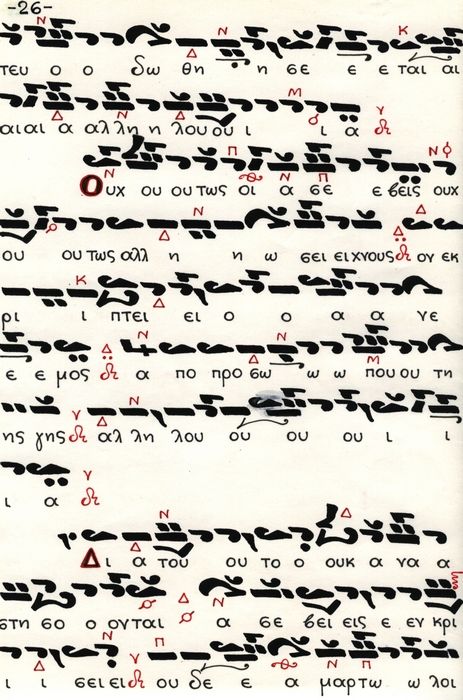 -26-
τευ ο ο δω θη η σε ε ε ται αι
αιαι α αλ λη η λου ου ι ι α
Ουχ ου ου τως οι α σε ε βεις ουχ
ου ου τως αλλ η η ω σει ει χνους ον εκ
ρι ι πτει ει ο ο α α νε
ε ε μος α πο προ σω ω ω που ου τη
ης γης αλ λη λου ου ου ου ι ι
ι α
Δι α του ου το ο ουκ α να α
στη σο ο ονται α σε βει εις ε εν κρι
ι ι σει ει ου δε ε α μαρτω ω λοι